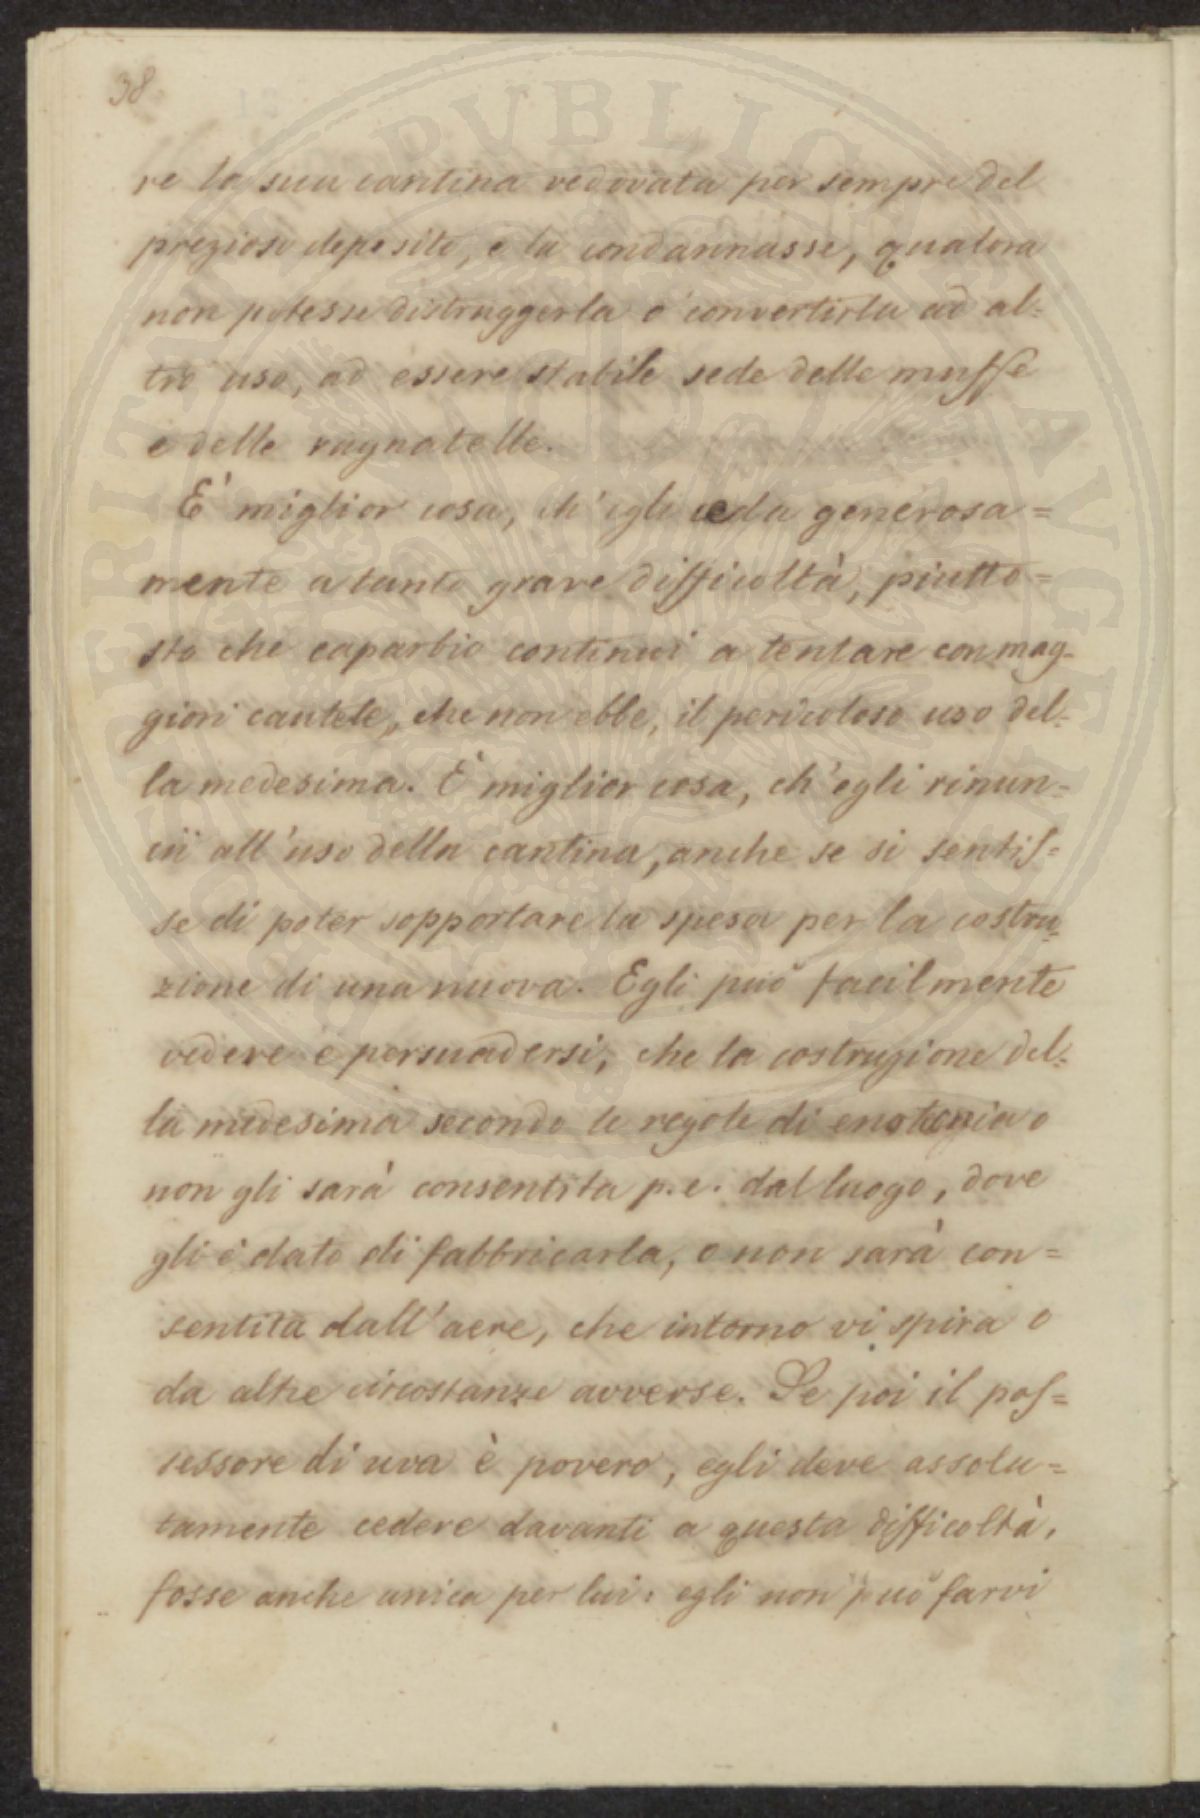 38
re la sua cantina vedovata per sempre del
prezioso deposito, e la condannasse, qualora
non potesse distruggerla o convertirla ad al=
tro uso, ad essere stabile sede delle muffe
e delle ragnatelle.
E' miglior cosa, ch'egli ceda generosa=
mente a tanto grave difficoltà, piutto=
sto che caparbio continui a tentare con mag=
giori cautele, che non ebbe, il pericoloso uso del=
la medesima. E' miglior cosa, ch'egli rinun=
cii all'uso della cantina, anche se si sentis=
se di poter sopportare la spesa per la costru=
zione di una nuova. Egli può facilmente
vedere e persuadersi, che la costruzione del=
la medesima secondo le regole di enotecnia o
non gli sarà consentita p. e. dal luogo, dove
gli è dato di fabbricarla, o non sarà con=
sentita dall'aere, che intorno vi spira o
da altre circostanze avverse. Se poi il pos=
sessore di uva è povero, egli deve assolu=
tamente cedere davanti a questa difficoltà,
fosse anche unica per lui: egli non può farvi
PROSPERITATI PUBLICAE AUGENDAE